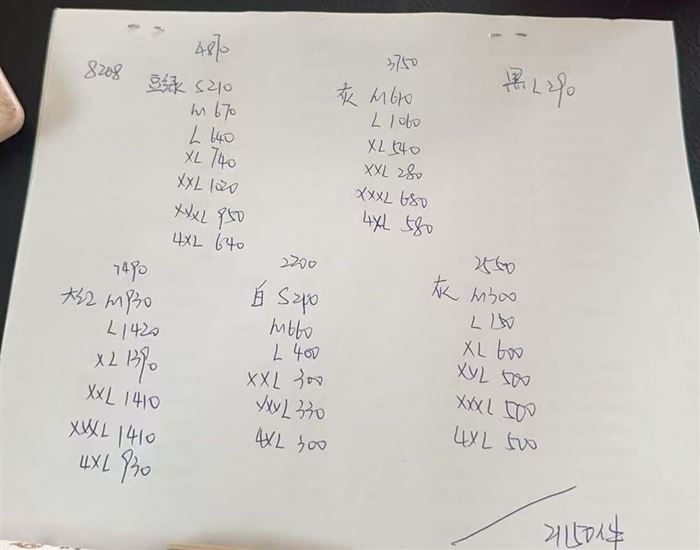 4870
8208 豆绿 S210
M 670
L 640
XL 740
XXL 1020
XXXL 950
4XL 640
3750
灰 M610
L 1060
XL 540
XXL 280
XXXL 680
4XL 580
黑 L290
7490
大红 M930
L1420
XL 1390
XXL 1410
XXXL 1410
4XL 930
2200
白 S210
M660
L 400
XXL 300
XXXL 330
4XL 300
2550
灰 M300
L 150
XL 600
XXL 500
XXXL 500
4XL 500
21150件